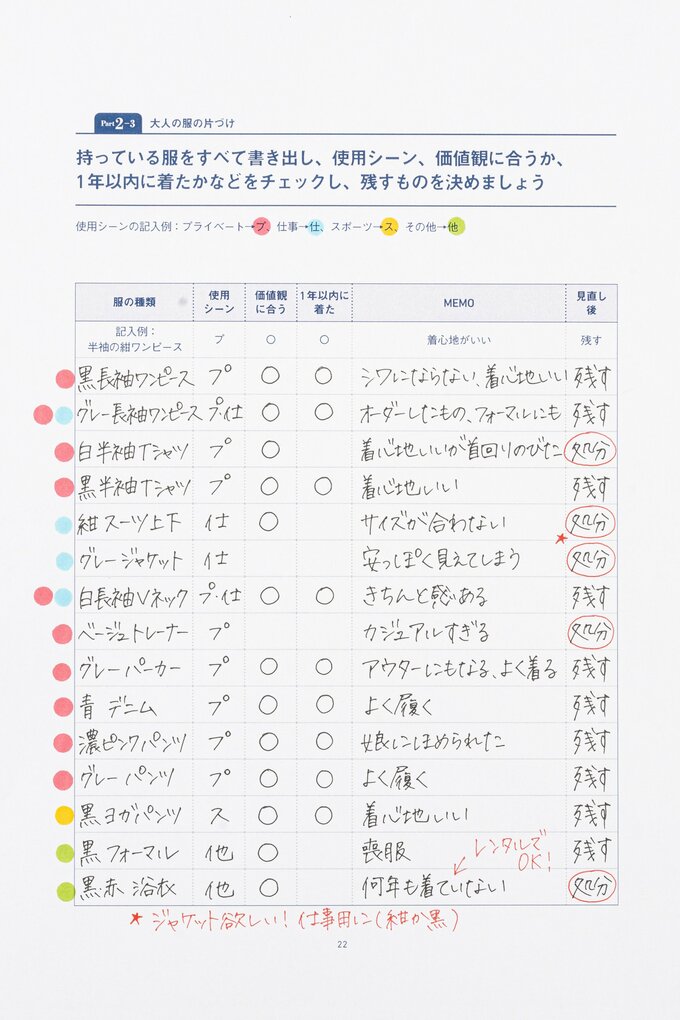 Part2-3 大人の服の片づけ
持っている服をすべて書き出し、使用シーン、価値観に合うか、
1年以内に着たかなどをチェックし、残すものを決めましょう
使用シーンの記入例：プライベート→プ、仕事→仕、スポーツ→ス、その他→他
服の種類 使用シーン 価値観に合う 1年以内に着た MEMO 見直し後
記入例：半袖の紺ワンピース プ ○ ○ 着心地がいい 残す
黒長袖ワンピース プ ○ ○ シワにならない、着心地いい 残す
グレー長袖ワンピース プ・仕 ○ ○ オーダーしたもの、フォーマルにも 残す
白半袖Tシャツ プ ○ 着心地いいが首回りのびた 処分
黒半袖Tシャツ プ ○ ○ 着心地いい 残す
紺スーツ上下 仕 ○ サイズが合わない 処分
グレージャケット 仕 安っぽく見えてしまう ★処分
白長袖Vネック プ・仕 ○ ○ きちんと感ある 残す
ベージュトレーナー プ カジュアルすぎる 処分
グレーパーカー プ ○ ○ アウターにもなる、よく着る 残す
青デニム プ ○ ○ よく履く 残す
濃ピンクパンツ プ ○ ○ 娘にほめられた 残す
グレーパンツ プ ○ ○ よく履く 残す
黒ヨガパンツ ス ○ ○ 着心地いい 残す
黒フォーマル 他 ○ 喪服 残す
レンタルでOK!
黒・赤 浴衣 他 ○ 何年も着ていない 処分
★ジャケット欲しい！仕事用に(紺か黒)
22